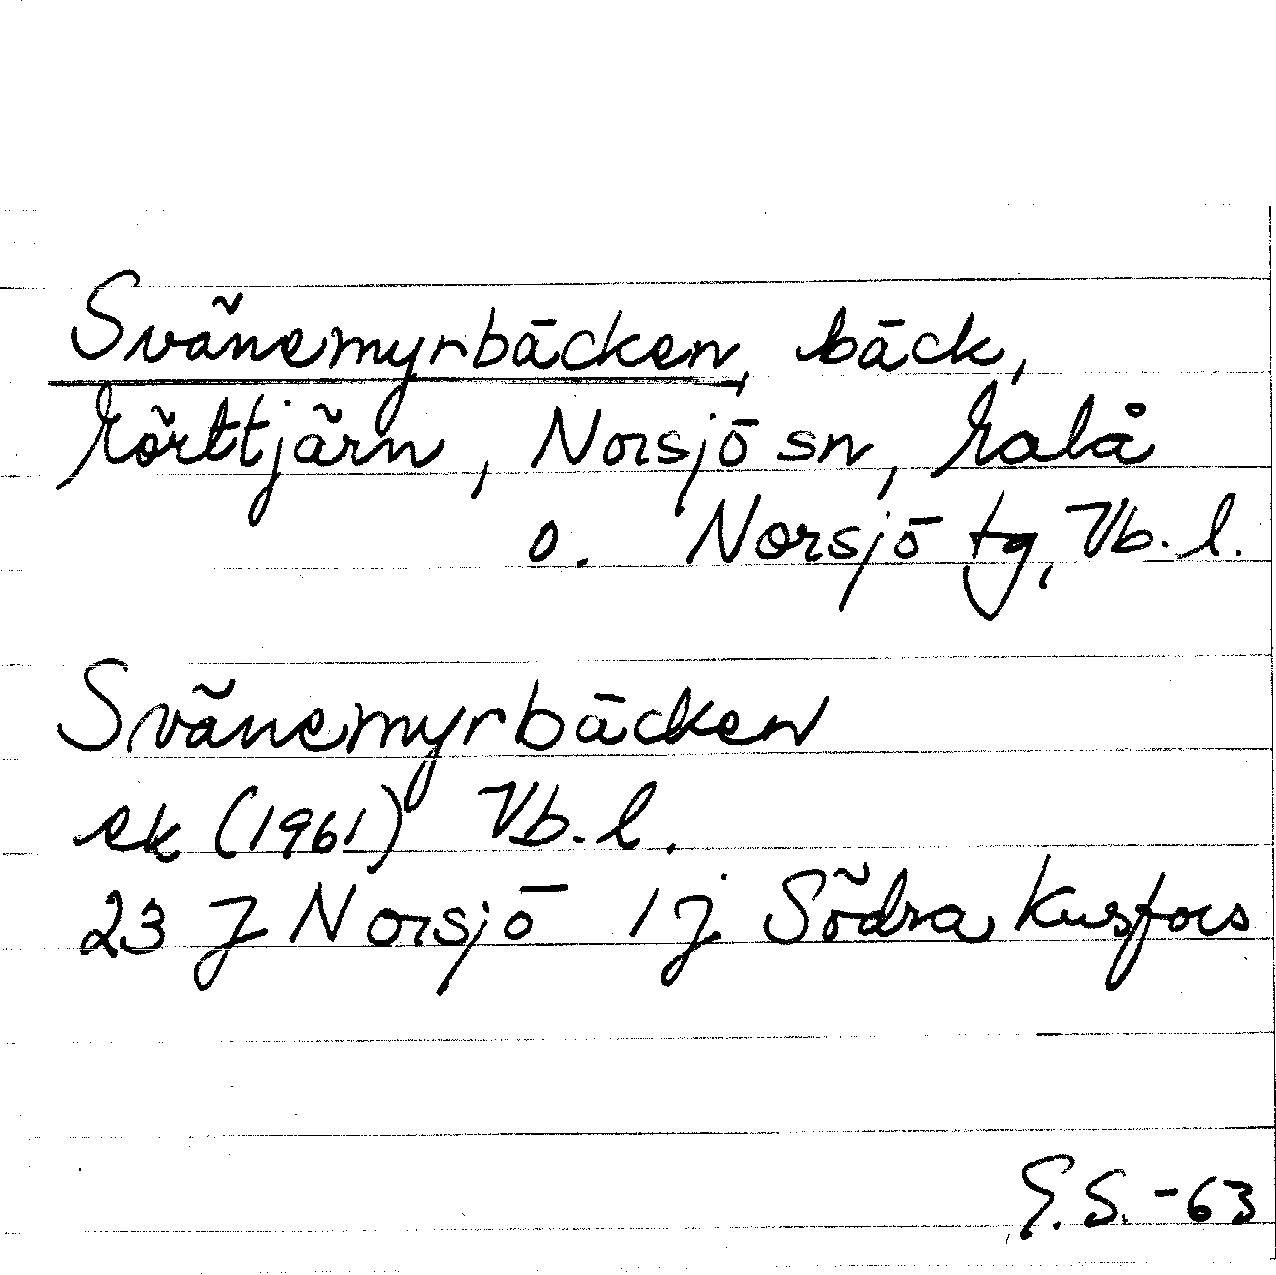 Svänemyrbäcken, bäck,
Mörttjärn, Norsjö sn, Malå
o. Norsjö tg, Vb. l.
Svänemyrbäcken
ek (1961) Vb. l.
23 J Norsjö 1 j. Södra Kusfors
G.S. -63